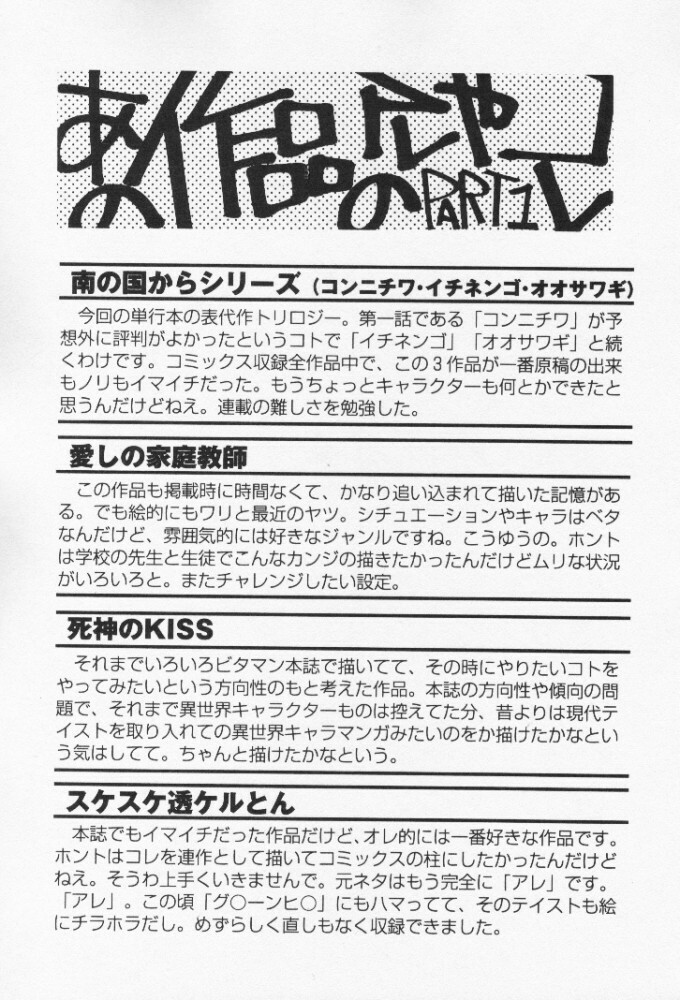 あの作品のアレやコレ PART1
南の国からシリーズ（コンニチワ・イチネンゴ・オオサワギ）
今回の単行本の表代作トリロジー。第一話である「コンニチワ」が予
想外に評判がよかったというコトで「イチネンゴ」「オオサワギ」と続
くわけです。コミックス収録全作品中で、この３作品が一番原稿の出来
もノリもイマイチだった。もうちょっとキャラクターも何とかできたと
思うんだけどねえ。連載の難しさを勉強した。
愛しの家庭教師
この作品も掲載時に時間なくて、かなり追い込まれて描いた記憶があ
る。でも絵的にもワリと最近のヤツ。シチュエーションやキャラはベタ
なんだけど、雰囲気的には好きなジャンルですね。こうゆうの。ホント
は学校の先生と生徒でこんなカンジの描きたかったんだけどムリな状況
がいろいろと。またチャレンジしたい設定。
死神のKISS
それまでいろいろビタマン本誌で描いてて、その時にやりたいコトを
やってみたいという方向性のもと考えた作品。本誌の方向性や傾向の問
題で、それまで異世界キャラクターものは控えてた分、昔よりは現代テ
イストを取り入れての異世界キャラマンガみたいのをか描けたかなとい
う気はしてて。ちゃんと描けたかなという。
スケスケ透ケルとん
本誌でもイマイチだった作品だけど、オレ的には一番好きな作品です。
ホントはコレを連作として描いてコミックスの柱にしたかったんだけど
ねえ。そうわ上手くいきませんで。元ネタはもう完全に「アレ」です。
「アレ」。この頃「グ○ーンヒ○」にもハマってて、そのテイストも絵
にチラホラだし。めずらしく直しもなく収録できました。